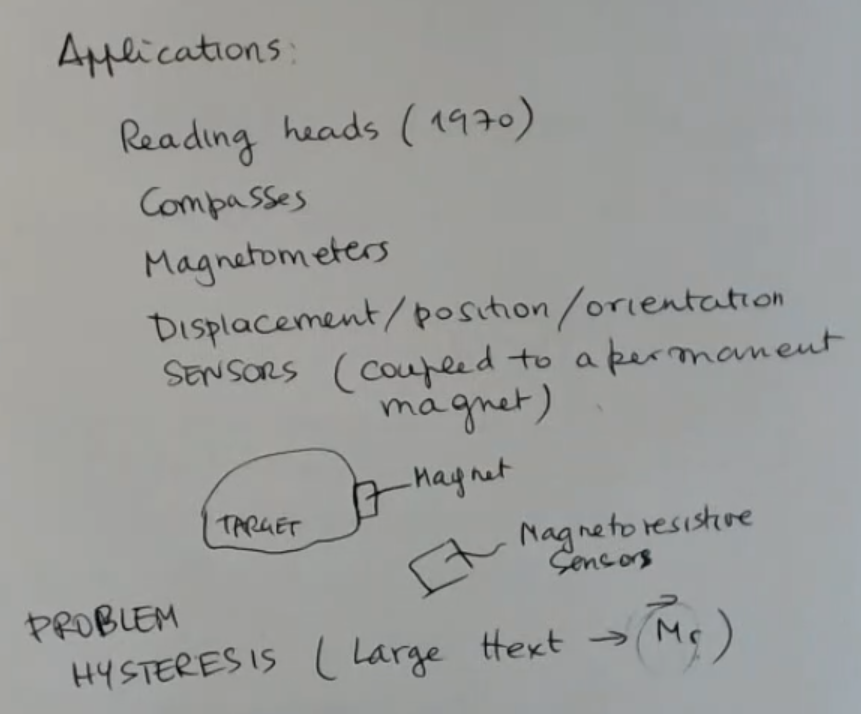 Applications:
Reading heads (1970)
Compasses
Magnetometers
Displacement/position/orientation
SENSORS (coupled to a permanent
magnet)
Magnet
TARGET
Magnetoresistive
Sensors
PROBLEM
HYSTERESIS (Large Hext → M⃗s)